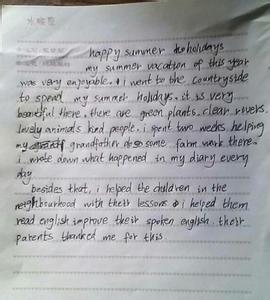 水晶星
happy summer holidays
my summer vacation of this year
was very enjoyable. i went to the countryside
to spend my summer holidays. it is very
beautiful there. there are green plants. clear rivers.
lovely animals kind people. i spent two weeks helping
my grandfather do some farm work there.
i wrote down what happened in my diary every
day
besides that, i helped the children in the
neighbourhood with their lessons i helped them
read english improve their spoken english. their
parents thanked me for this.